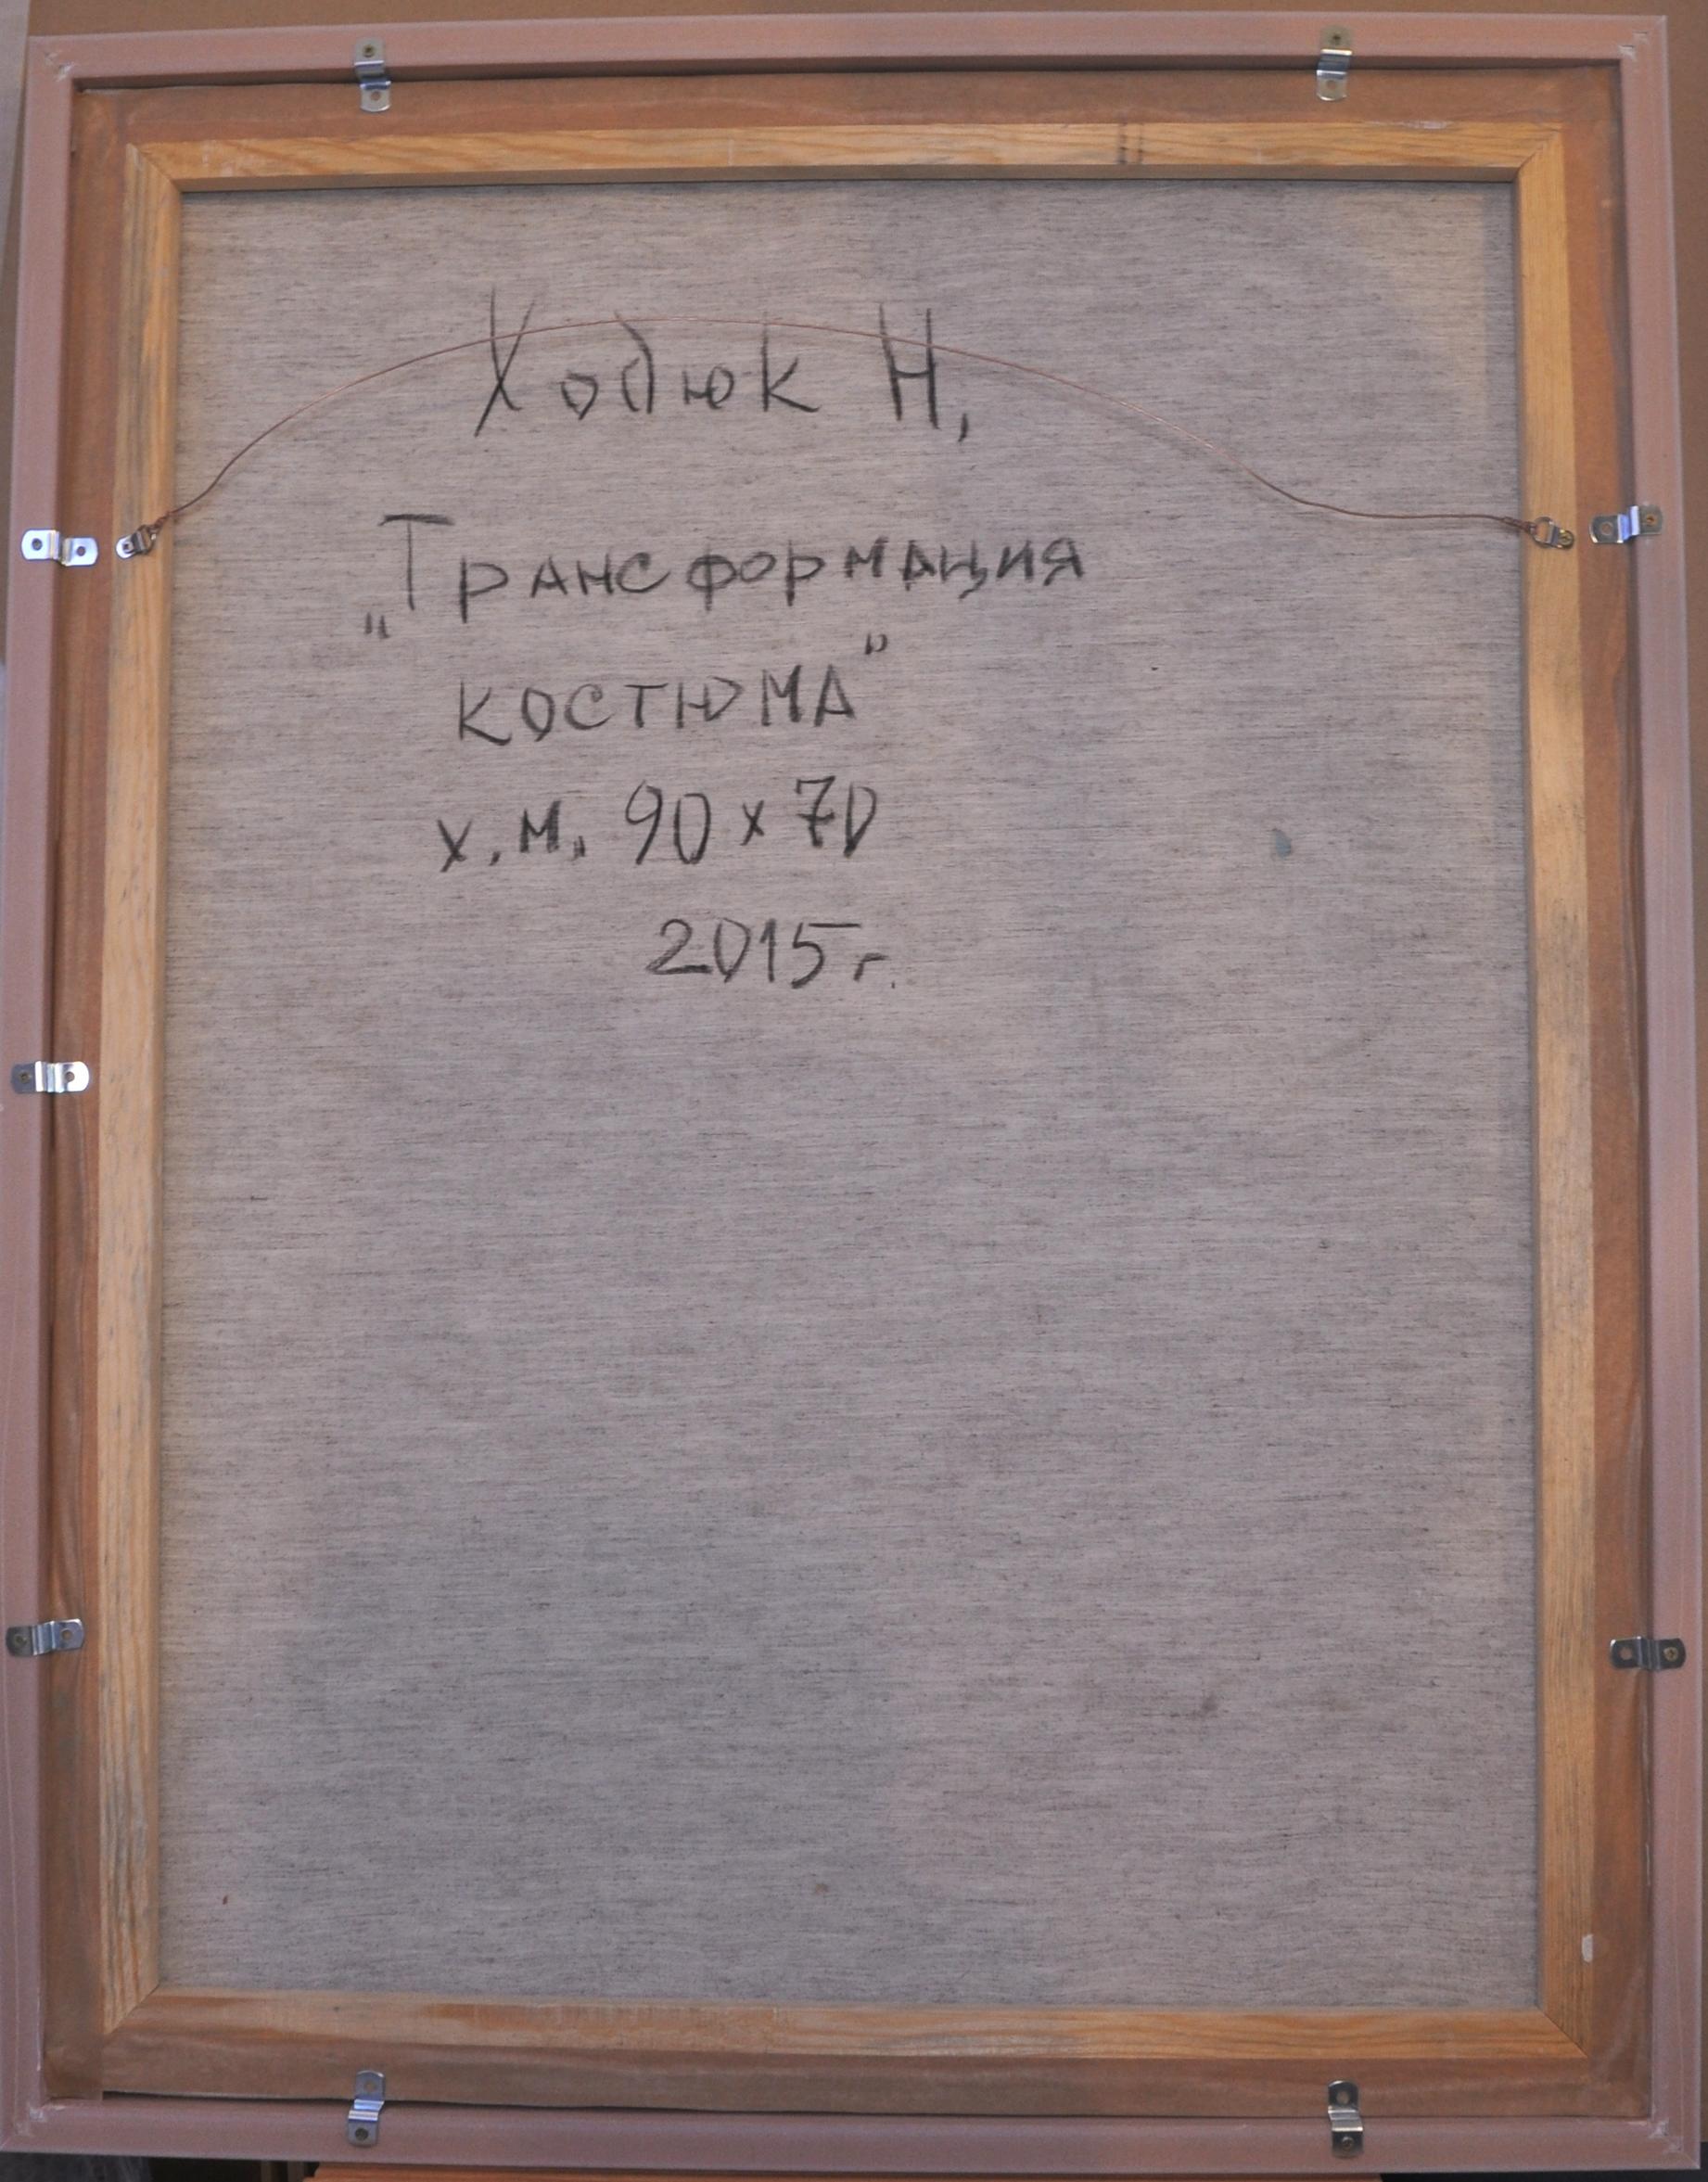 Ходюк Н,
„Трансформация
костюма"
х.м. 90 x 70
2015 г.